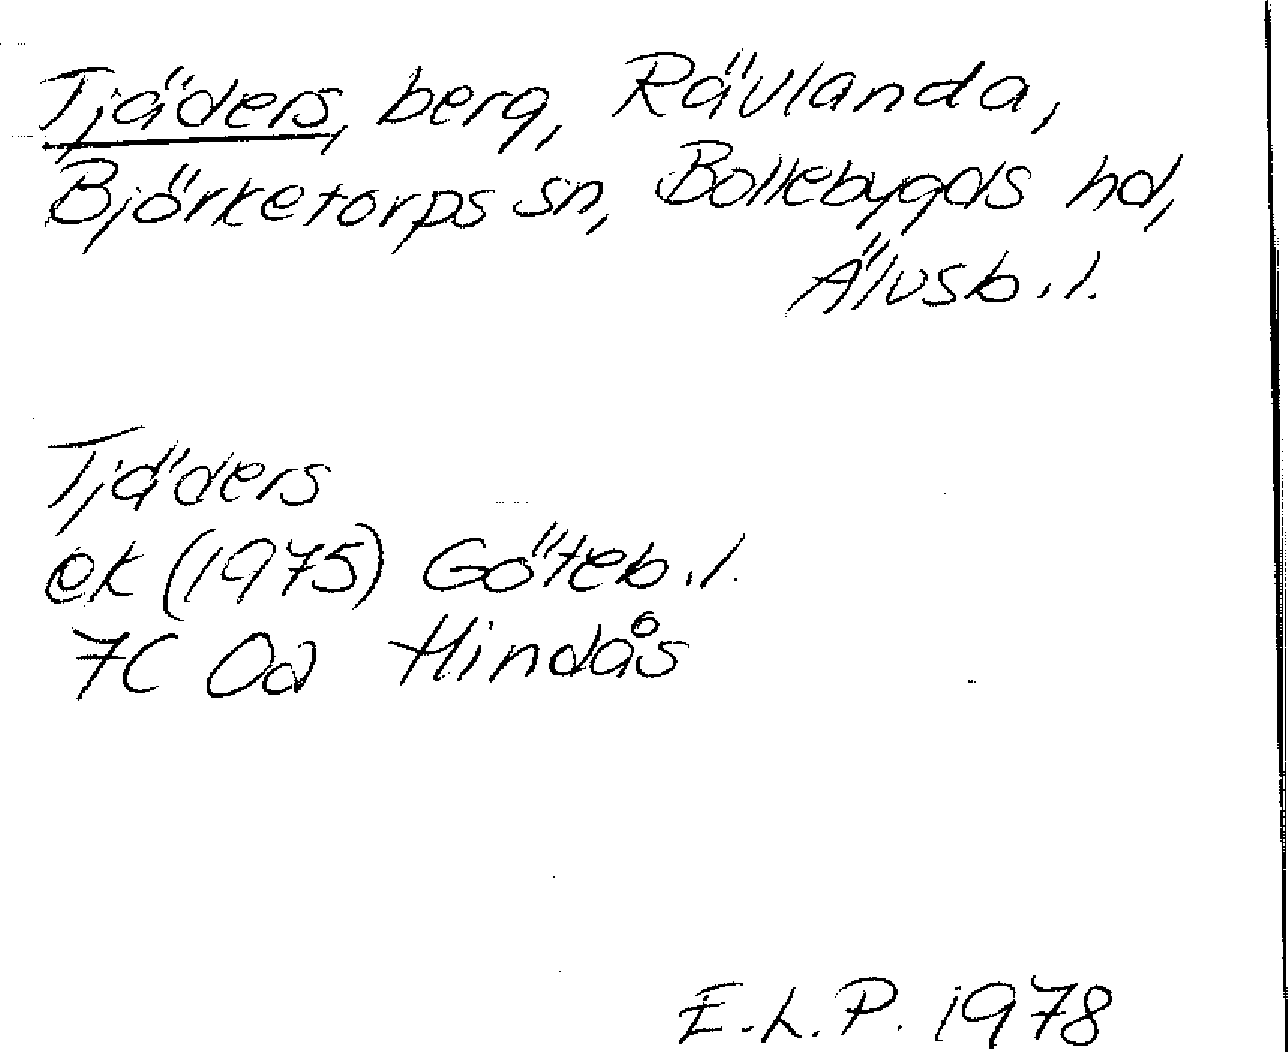 Tjäders, berg, Rävlanda,
Björketorps sn, Bollebygds hd,
Älvsb.l.
Tjäders
ek (1975) Göteb.l.
7C 0a Hindås
E.L.P. 1978